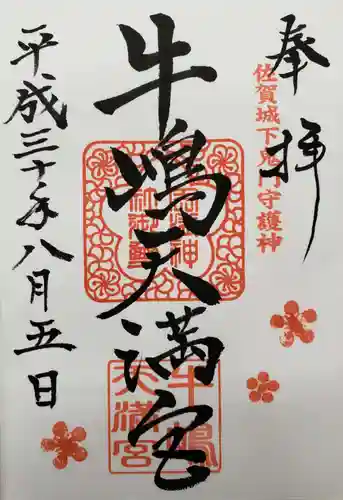 奉拝
佐賀城下鬼門守護神
牛嶋天満宮
牛嶋天満宮
平成三十年八月五日